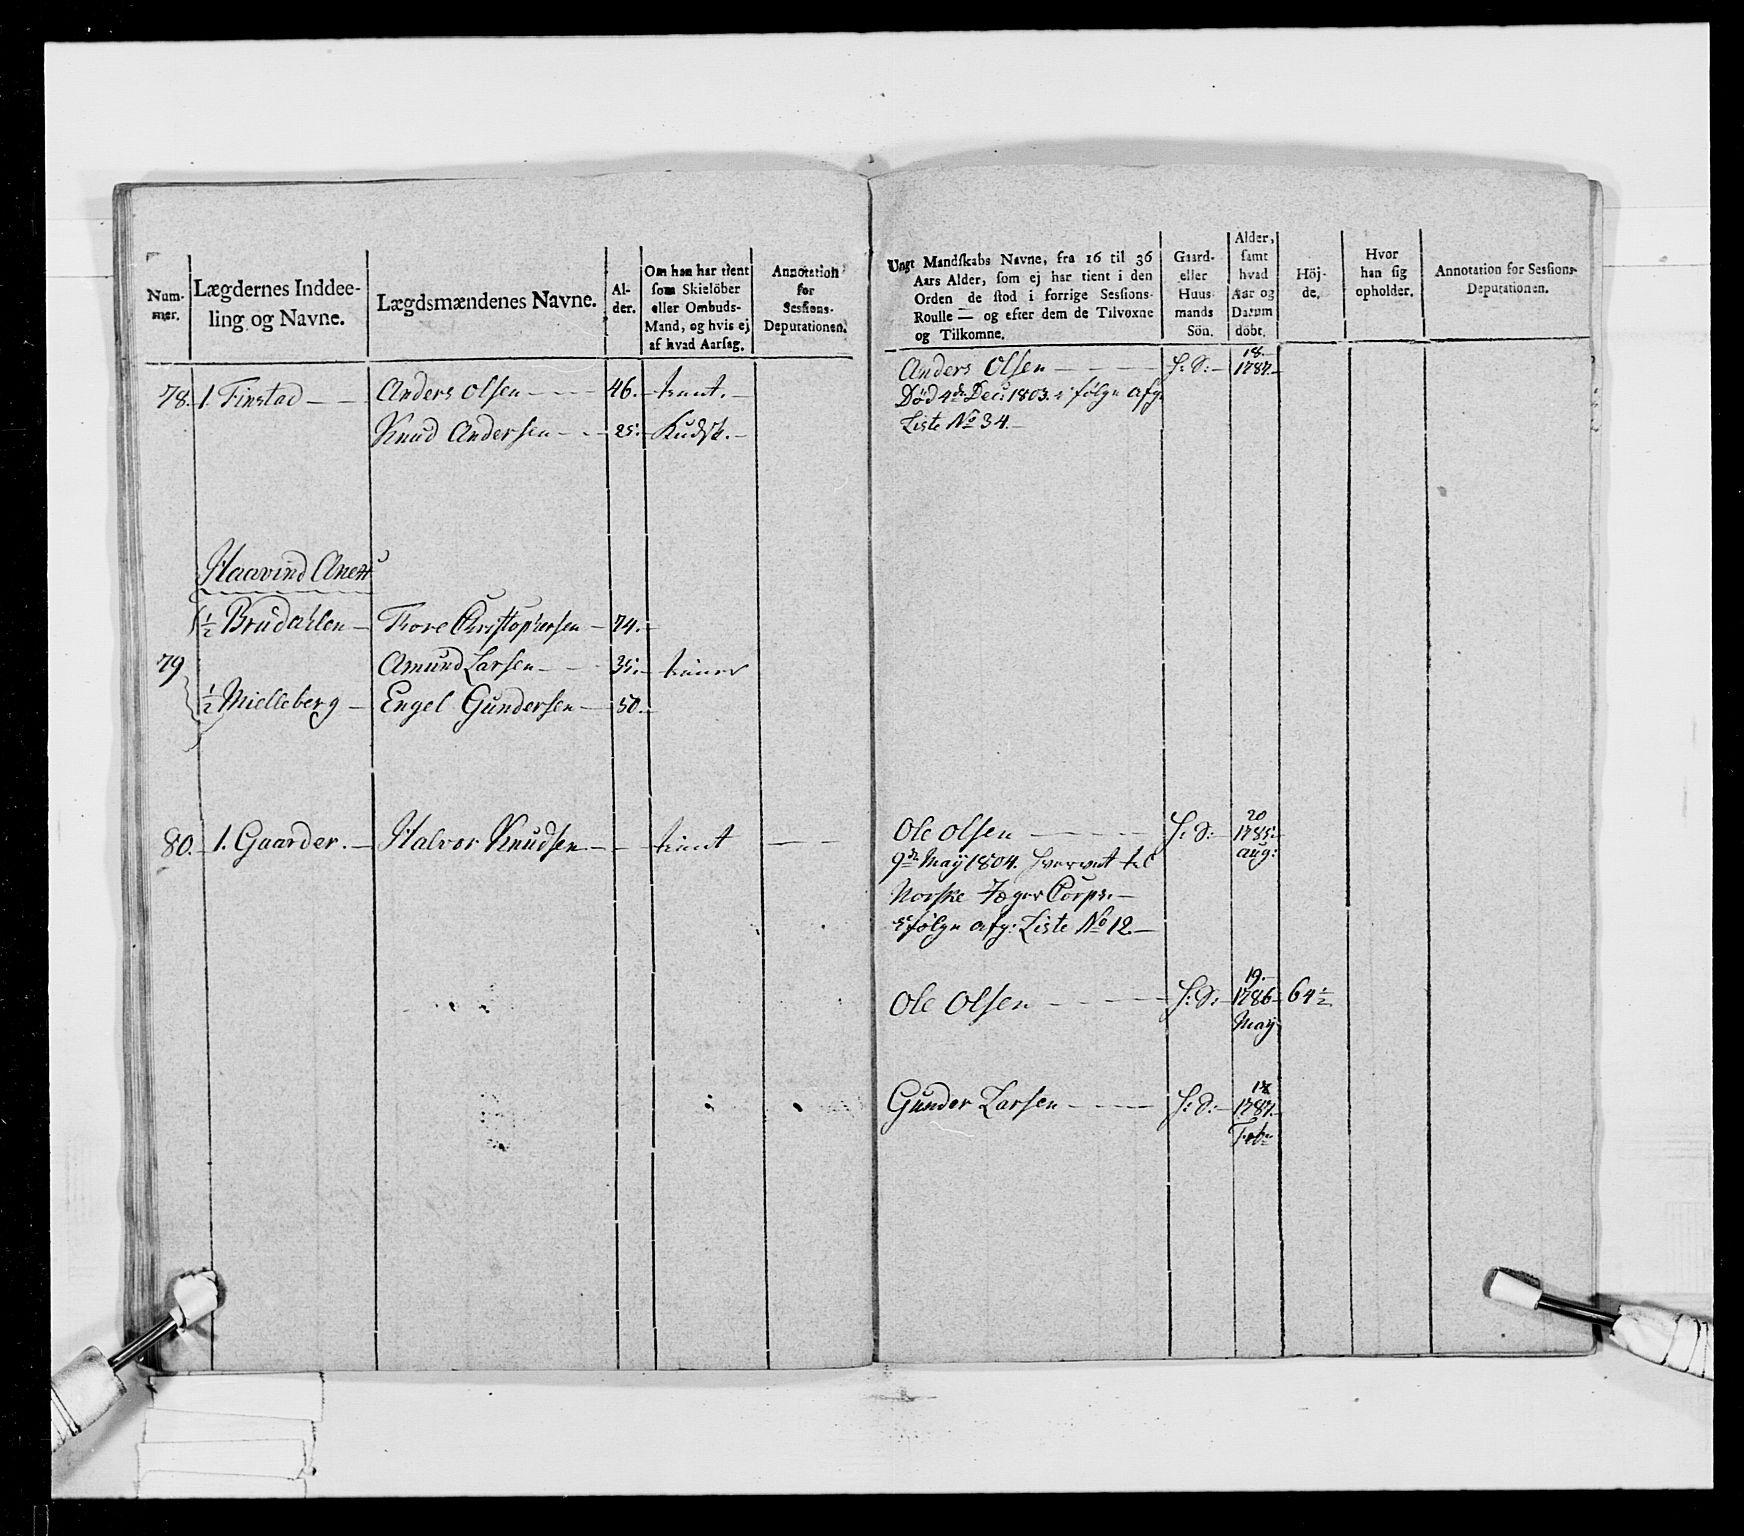 Num-
mer.
Lægdernes Inddee-
ling og Navne.
Lægdsmændenes Navne.
Al-
der.
Om han har tient
som Skielöber
eller Ombuds-
Mand, og hvis ej
af hvad Aarsag.
Annotation
for
Sessions-
Deputationen.
78. 1. Finstad Anders Olsen 46. tient.
Knud Andersen 25. Kudsk.
Haavind Anex
1/2 Brudahlen Tore Christophersen 74.
79 Amund Larsen 35. tiener
1/2 Mielleberg Engel Gundersen 50.
80. 1. Gaarder. Halvor Knudsen tient
Ungt Mandskabs Navne, fra 16 til 36
Aars Alder, som ej har tient i den
Orden de stod i forrige Sessions-
Roulle — og efter dem de Tilvoxne
og Tilkomne.
Gaard-
eller
Huus-
mands
Sön.
Alder,
samt
hvad
Aar og
Datum
döbt.
Höj-
de.
Hvor
han sig
opholder.
Annotation for Sessions-
Deputationen.
18.
Anders Olsen 1787.
Død 4de Dec: 1803. i følge afg.
Liste No 34.
20
Ole Olsen 1785.
aug:
9de May 1804. hvervet til
Norske Jæger Corps.
ifølge afg: Liste No 12.
19.
Ole Olsen 1786 64 1/2
May
18
Gunder Larsen 1787.
Febr